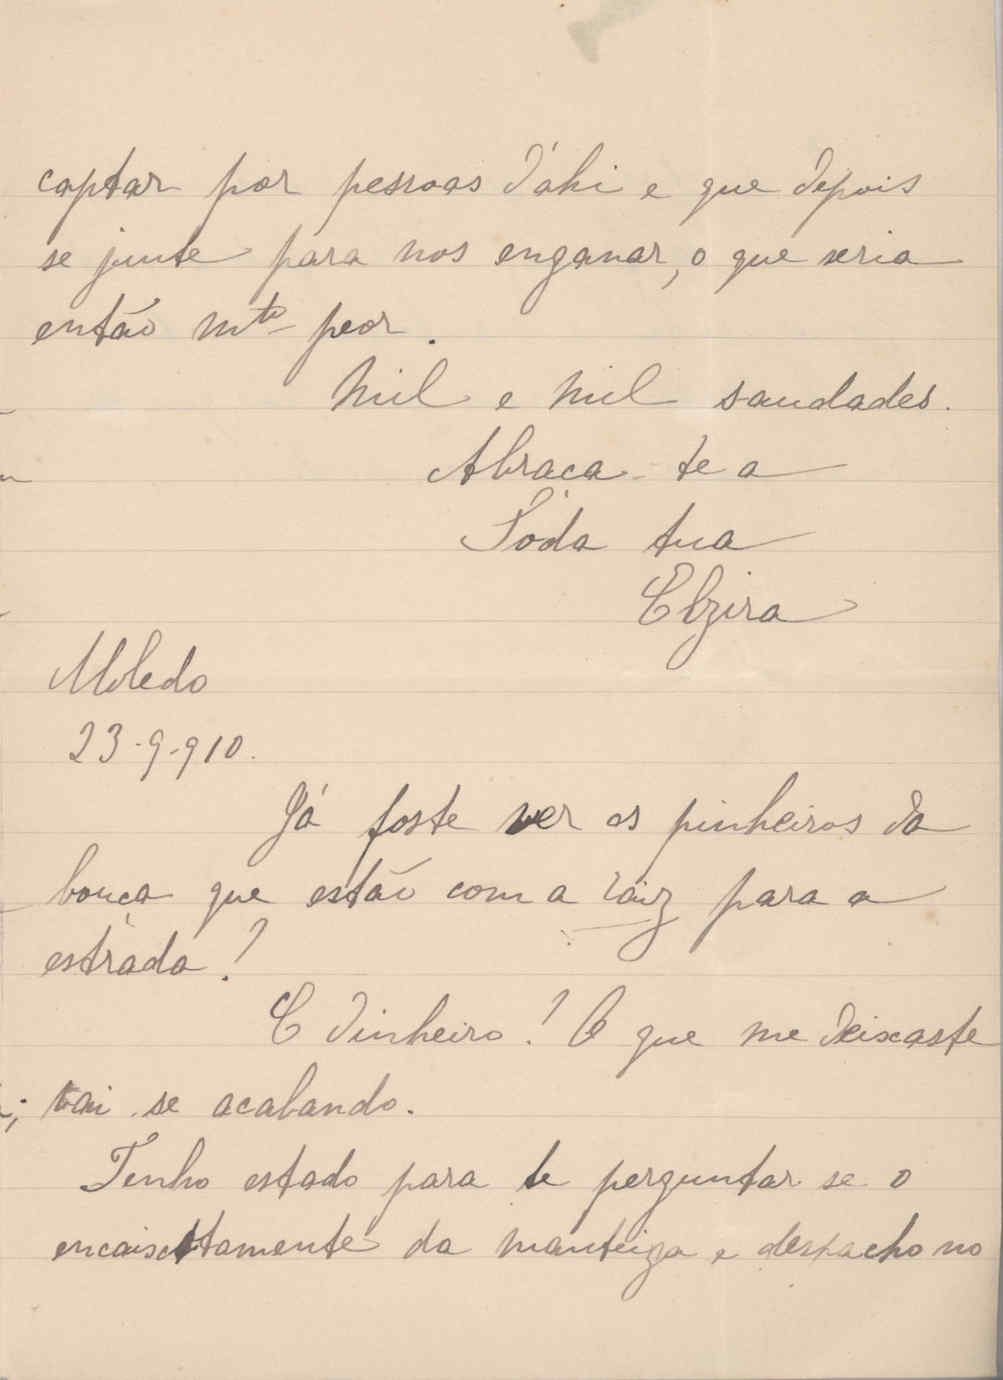 captar por pessoas d'ahi e que depois
se junte para nos enganar, o que seria
então mto peor.
Mil e mil saudades.
Abraça-te a
Toda tua
Elzira
Moledo
23-9-910.
Já foste ver os pinheiros da
bouça que estão com a raiz para a
estrada?
E dinheiro? O que me deixaste
vai se acabando.
Tenho estado para te perguntar se o
da manteiga e despacho no